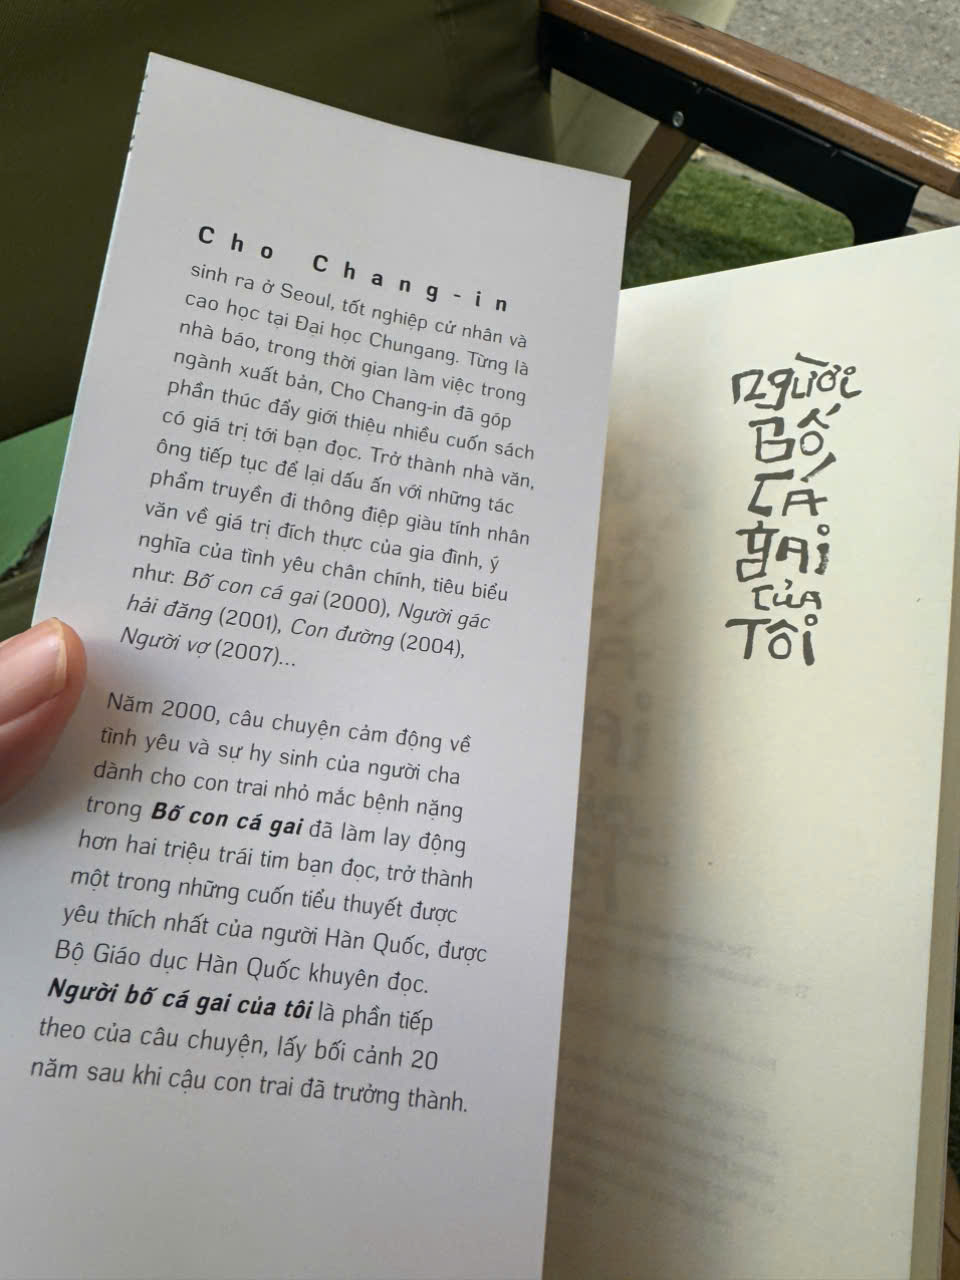 Cho Chang-in
sinh ra ở Seoul, tốt nghiệp cử nhân và
cao học tại Đại học Chungang. Từng là
nhà báo, trong thời gian làm việc trong
ngành xuất bản, Cho Chang-in đã góp
phần thúc đẩy giới thiệu nhiều cuốn sách
có giá trị tới bạn đọc. Trở thành nhà văn,
ông tiếp tục để lại dấu ấn với những tác
phẩm truyền đi thông điệp giàu tính nhân
văn về giá trị đích thực của gia đình, ý
nghĩa của tình yêu chân chính, tiêu biểu
như: Bố con cá gai (2000), Người gác
hải đăng (2001), Con đường (2004),
Người vợ (2007)...
Năm 2000, câu chuyện cảm động về
tình yêu và sự hy sinh của người cha
dành cho con trai nhỏ mắc bệnh nặng
trong Bố con cá gai đã làm lay động
hơn hai triệu trái tim bạn đọc, trở thành
một trong những cuốn tiểu thuyết được
yêu thích nhất của người Hàn Quốc, được
Bộ Giáo dục Hàn Quốc khuyên đọc.
Người bố cá gai của tôi là phần tiếp
theo của câu chuyện, lấy bối cảnh 20
năm sau khi cậu con trai đã trưởng thành.
Người
Bố
Cá
gai
của
Tôi